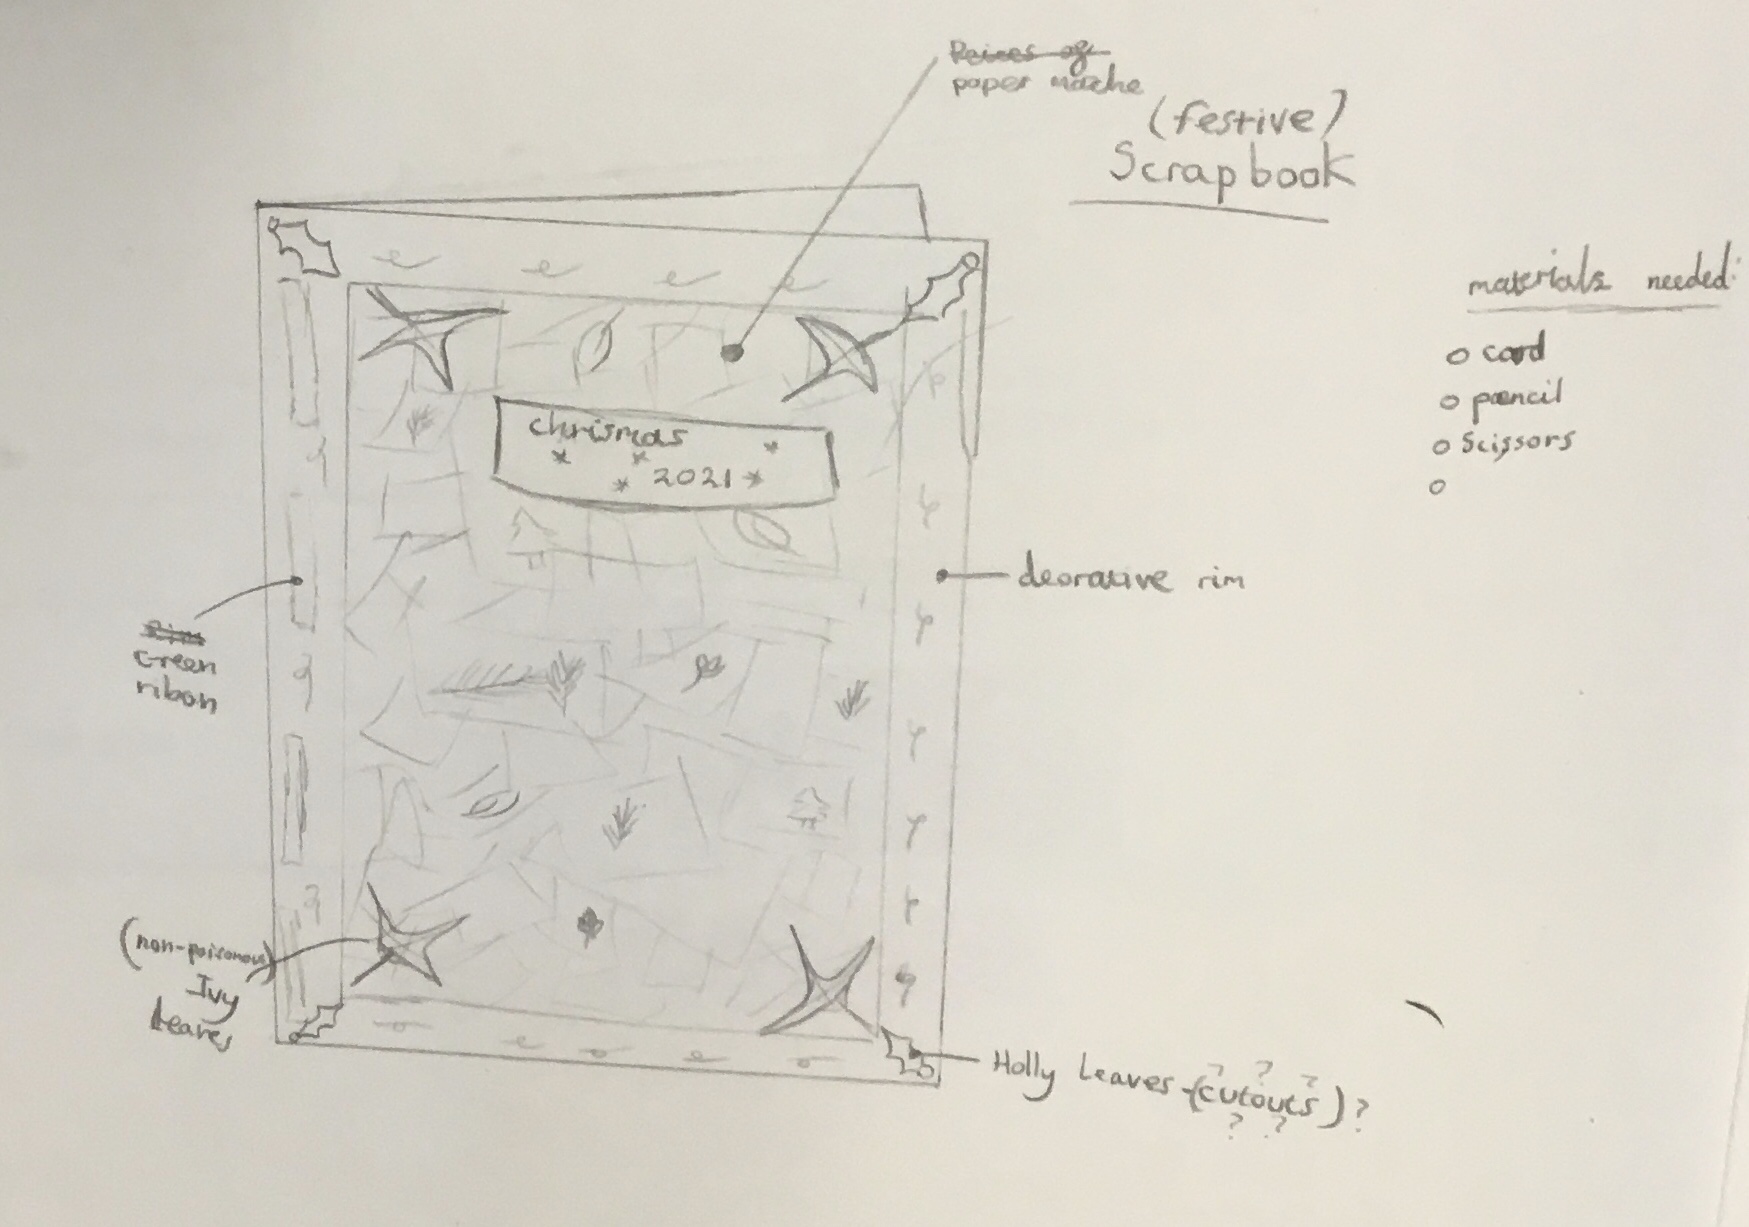 paper mache
(festive)
Scrapbook
materials needed:
card
pencil
Scissors
chrismas
2021
deorative rim
Green
ribon
(non-poisonous)
Ivy
Leaves
Holly Leaves (cutouts)?
? ? ?
? ?